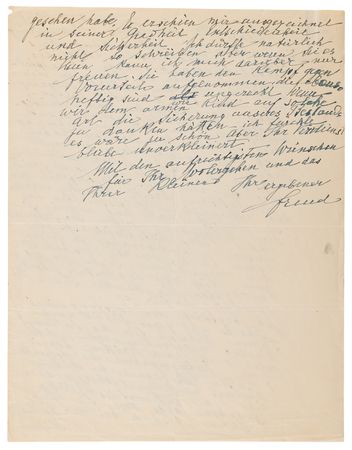 gesehen habe. Er erschien mir ausgezeichnet
in seiner Geistheit, Entschiedenheit
und Sicherheit. Ich dürfte natürlich
nicht so schreiben aber wenn Sie es
thun kann ich mich darüber nur
freuen. Sie haben den Kampf gegen
Vorurteile aufgenommen die ebenso
heftig sind als ungerecht. Wenn
wir dem armen Kidd auf solche
Art die Sicherung unseres
zu danken hätten, ich fürchte
es wäre zu schön aber Ihr Verdienst
bliebe unverkleinert.
Mit den aufrichtigsten Wünschen
für Ihr Wolergehen und das
Ihrer Kleinen Ihr ergebener
Freud